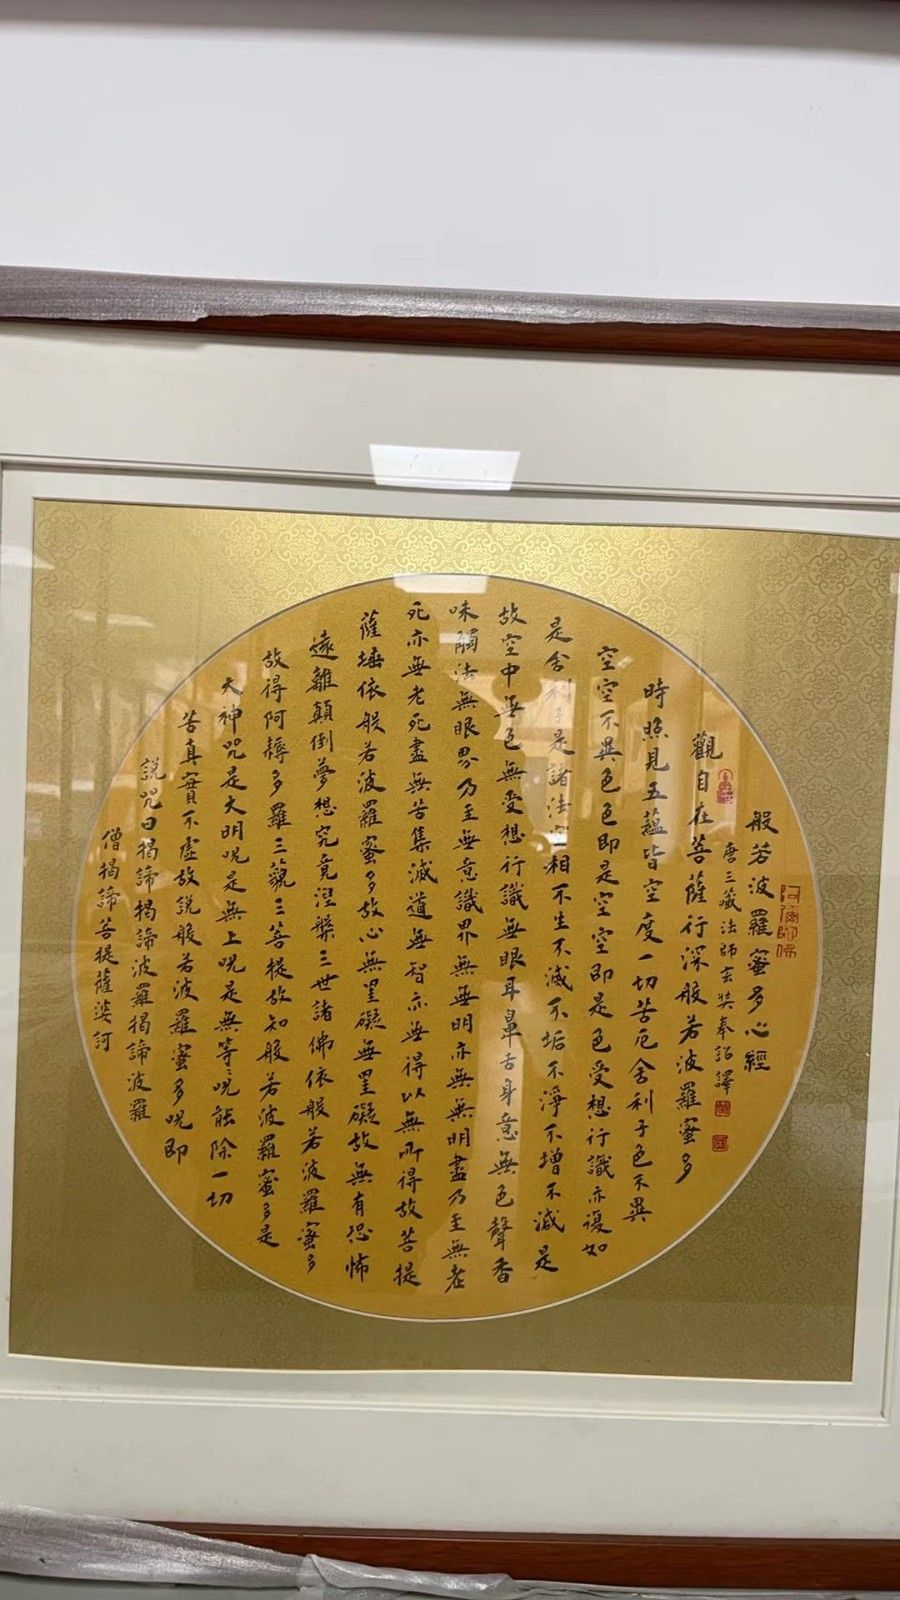 般若波羅蜜多心經
唐三藏法師玄奘奉詔譯
觀自在菩薩行深般若波羅蜜多
時照見五蘊皆空度一切苦厄舍利子色不異
空空不異色色即是空空即是色受想行識亦復如
是舍利子是諸法空相不生不滅不垢不淨不增不減是
故空中無色無受想行識無眼耳鼻舌身意無色聲香
味觸法無眼界乃至無意識界無無明亦無無明盡乃至無老
死亦無老死盡無苦集滅道無智亦無得以無所得故菩提
薩埵依般若波羅蜜多故心無罣礙無罣礙故無有恐怖
遠離顛倒夢想究竟涅槃三世諸佛依般若波羅蜜多
故得阿耨多羅三藐三菩提故知般若波羅蜜多是
大神咒是大明咒是無上咒是無等々咒能除一切
苦真實不虛故說般若波羅蜜多咒即
說咒曰揭諦揭諦波羅揭諦波羅
僧揭諦菩提薩婆訶